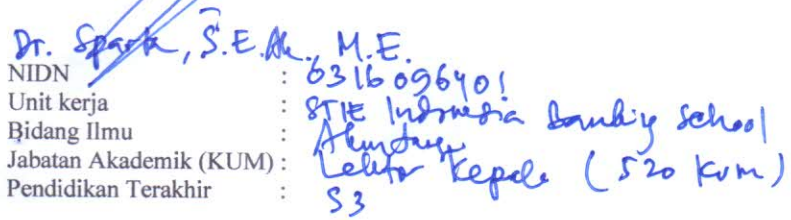 Dr. Sparta, S.E.Ak., M.E.
NIDN : 0316096401
Unit kerja : STIE Indonesia Banking School
Bidang Ilmu : Akuntansi
Jabatan Akademik (KUM) : Lektor Kepala (520 Kum)
Pendidikan Terakhir : S3